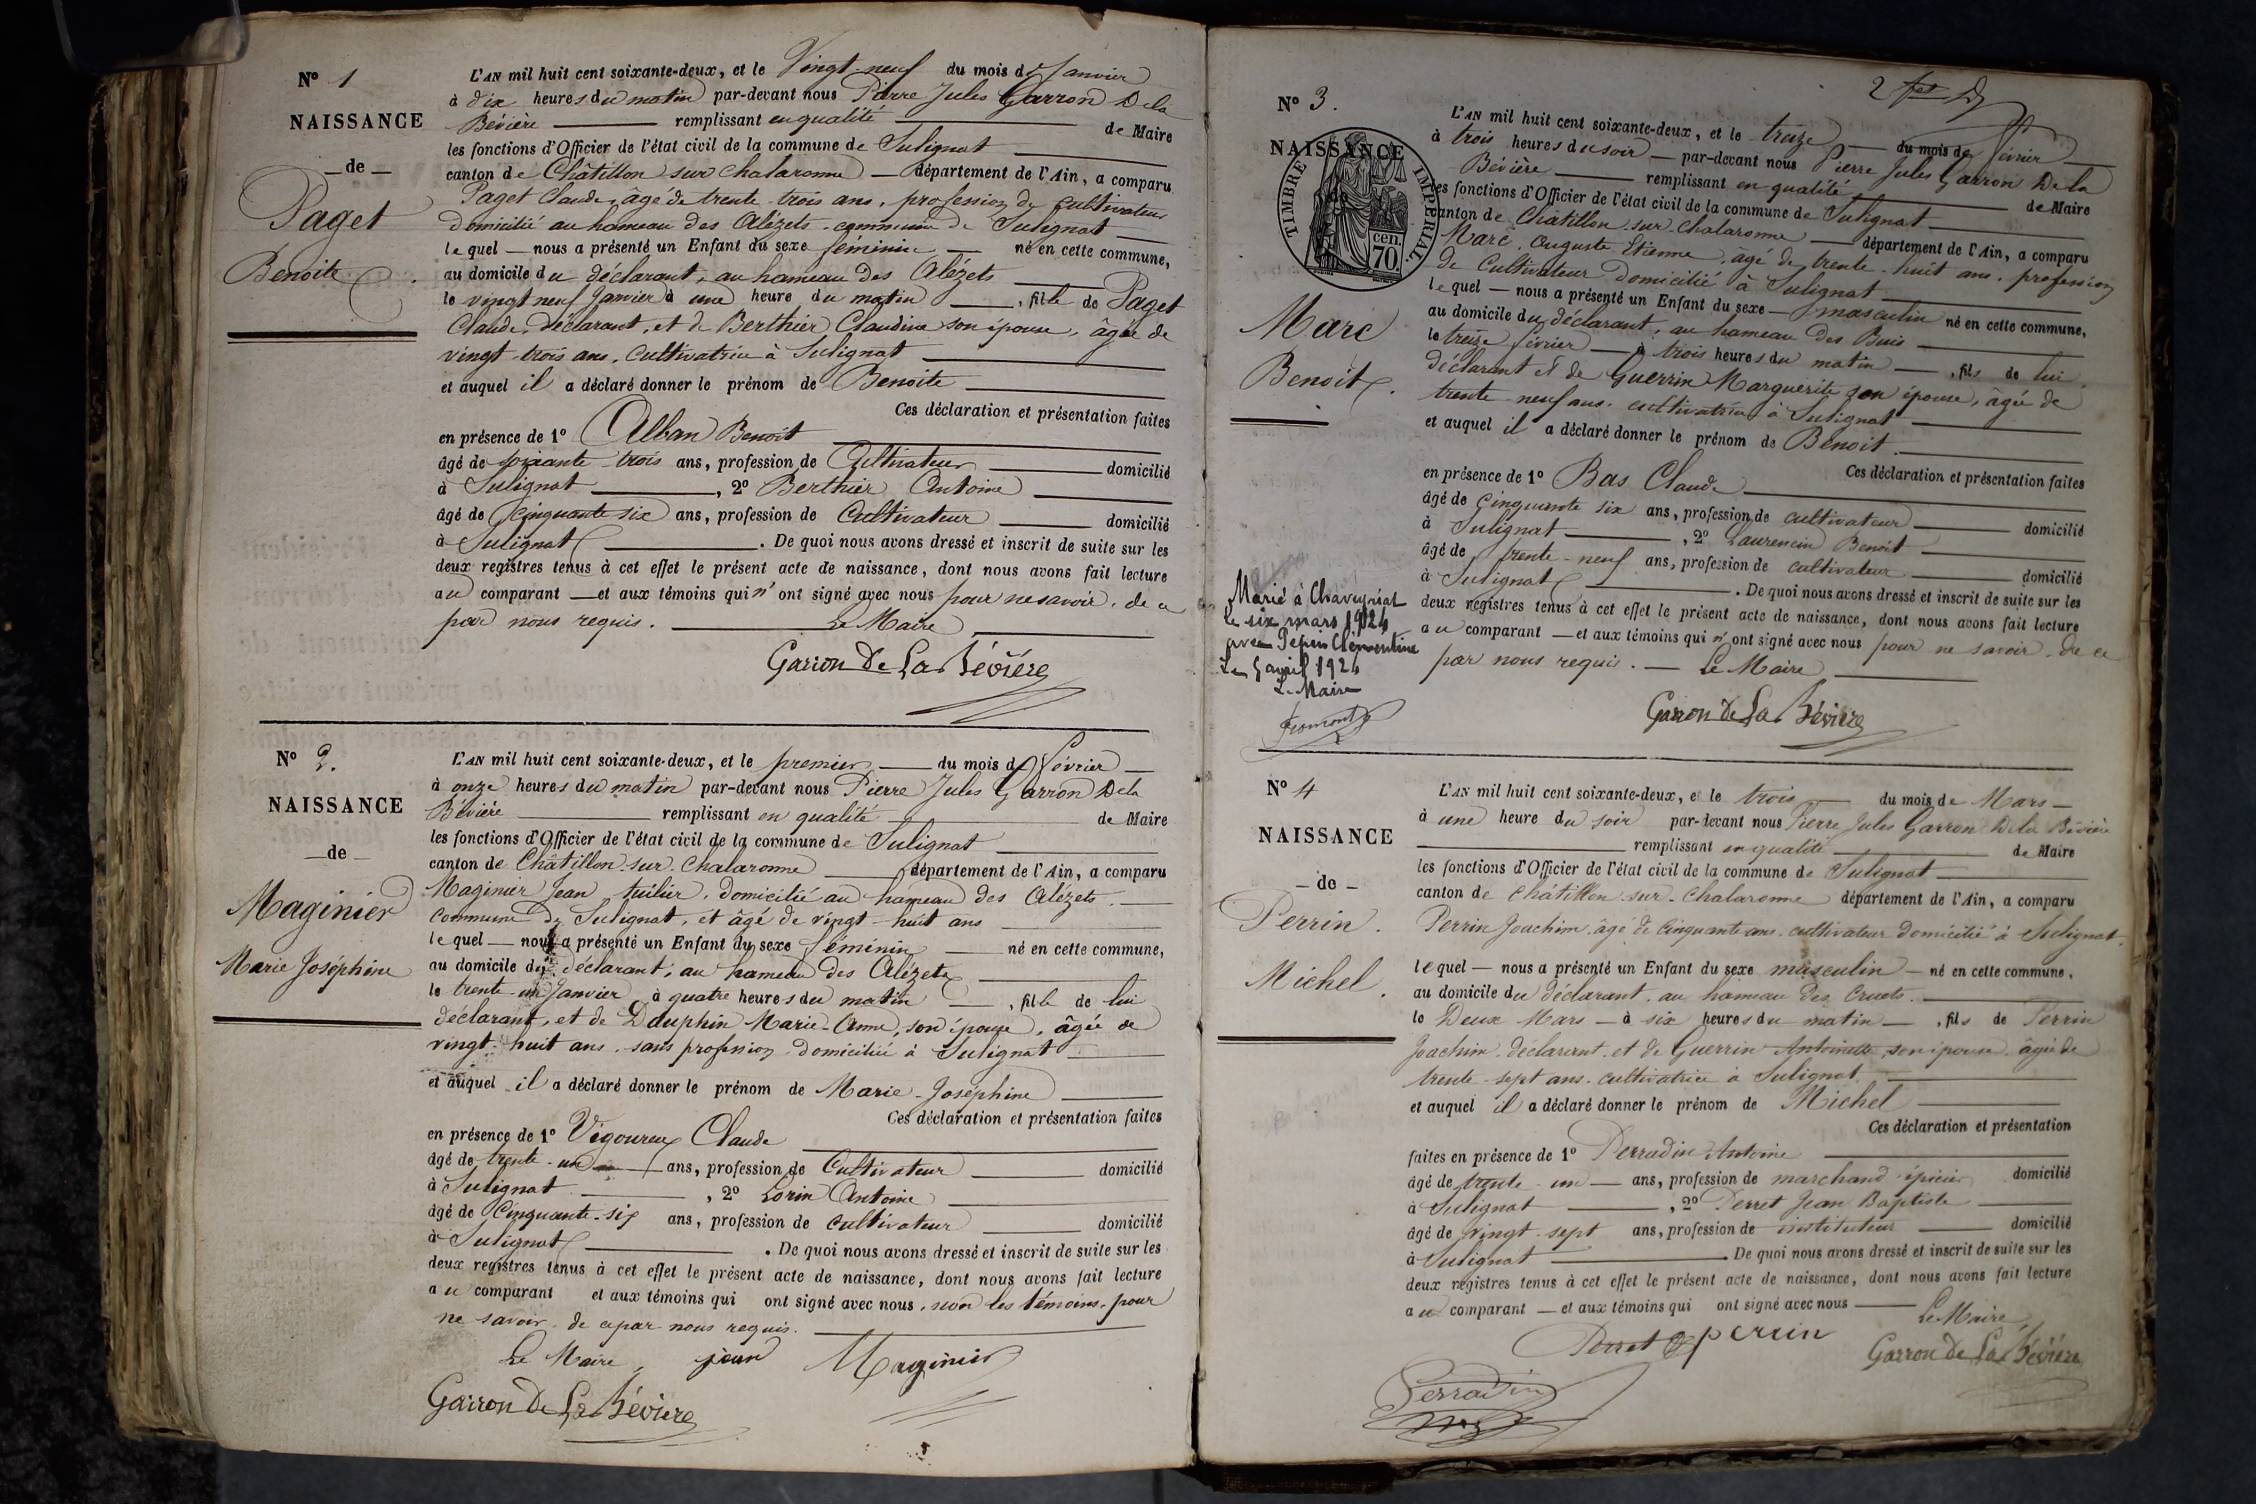 N° 1
NAISSANCE
de
Paget
Benoite
L'AN mil huit cent soixante-deux, et le Vingt-neuf du mois de Janvier
à dix heures du matin par-devant nous Pierre Jules Garron De la
Bévière remplissant en qualité de Maire
les fonctions d'Officier de l'état civil de la commune de Sulignat
canton de Châtillon sur Chalaronne département de l'Ain, a comparu
Paget Claude, âgé de trente-trois ans, profession de cultivateur
domicilié au hameau des Alézets, commune de Sulignat
lequel nous a présenté un Enfant du sexe féminin né en cette commune,
au domicile du déclarant, au hameau des Alézets
le vingt neuf Janvier à une heure du matin, fille de Paget
Claude, déclarant, et de Berthier Claudine son épouse, âgée de
vingt-trois ans, cultivatrice à Sulignat
et auquel il a déclaré donner le prénom de Benoite
Ces déclaration et présentation faites
en présence de 1° Alban Benoit
âgé de soixante-trois ans, profession de Cultivateur domicilié
à Sulignat, 2° Berthier Antoine
âgé de cinquante six ans, profession de Cultivateur domicilié
à Sulignat. De quoi nous avons dressé et inscrit de suite sur les
deux registres tenus à cet effet le présent acte de naissance, dont nous avons fait lecture
au comparant et aux témoins qui n'ont signé avec nous pour ne savoir, de ce
par nous requis. Le Maire
Garron De La Bévière
N° 2.
NAISSANCE
de
Maginier
Marie Joséphine
L'AN mil huit cent soixante-deux, et le premier du mois de Février
à onze heures du matin par-devant nous Pierre Jules Garron De la
Bévière remplissant en qualité de Maire
les fonctions d'Officier de l'état civil de la commune de Sulignat
canton de Châtillon-sur-Chalaronne département de l'Ain, a comparu
Maginier Jean, tuilier, domicilié au hameau des Alézets,
commune de Sulignat, et âgé de vingt-huit ans
lequel nous a présenté un Enfant du sexe féminin né en cette commune,
au domicile du déclarant, au hameau des Alézets
le trente-un Janvier à quatre heures du matin, fille de lui
déclarant, et de Dauphin Marie-Anne, son épouse, âgée de
vingt-huit ans, sans profession domiciliée à Sulignat
et auquel il a déclaré donner le prénom de Marie-Joséphine
Ces déclaration et présentation faites
en présence de 1° Vigoureux Claude
âgé de trente-un ans, profession de Cultivateur domicilié
à Sulignat, 2° Lorin Antoine
âgé de Cinquante-six ans, profession de cultivateur domicilié
à Sulignat. De quoi nous avons dressé et inscrit de suite sur les
deux registres tenus à cet effet le présent acte de naissance, dont nous avons fait lecture
au comparant et aux témoins qui ont signé avec nous, non les témoins, pour
ne savoir, de ce par nous requis.
Le Maire, jean Maginier
Garron De La Bévière
2
N° 3.
NAISSANCE
TIMBRE IMPERIAL
70 cen.
Marc
Benoit.
Marié à Chaveyriat
le six mars 1924
avec Pepin Clémentine
Le 5 avril 1924
Le Maire
L'AN mil huit cent soixante-deux, et le treize du mois de février
à trois heures du soir par-devant nous Pierre Jules Garron De la
Bévière remplissant en qualité de Maire
les fonctions d'Officier de l'état civil de la commune de Sulignat
canton de Châtillon-sur-Chalaronne département de l'Ain, a comparu
Marc, Auguste Etienne, âgé de trente-huit ans, profession
de Cultivateur domicilié à Sulignat
lequel nous a présenté un Enfant du sexe masculin né en cette commune,
au domicile du déclarant, au hameau des Buis
le treize février à trois heures du matin, fils de lui
déclarant et de Guerrin Marguerite son épouse, âgée de
trente-neuf ans, cultivatrice à Sulignat
et auquel il a déclaré donner le prénom de Benoit.
Ces déclaration et présentation faites
en présence de 1° Bas Claude
âgé de cinquante six ans, profession de cultivateur domicilié
à Sulignat, 2° Laurencin Benoit
âgé de trente-neuf ans, profession de cultivateur domicilié
à Sulignat. De quoi nous avons dressé et inscrit de suite sur les
deux registres tenus à cet effet le présent acte de naissance, dont nous avons fait lecture
au comparant et aux témoins qui n'ont signé avec nous pour ne savoir, de ce
par nous requis. Le Maire
Garron De La Bévière
N° 4
NAISSANCE
de
Perrin.
Michel.
L'AN mil huit cent soixante-deux, et le trois du mois de Mars
à une heure du soir par-devant nous Pierre Jules Garron De la Bévière
remplissant en qualité de Maire
les fonctions d'Officier de l'état civil de la commune de Sulignat
canton de Châtillon-sur-Chalaronne département de l'Ain, a comparu
Perrin Joachim, âgé de cinquante ans, cultivateur domicilié à Sulignat.
lequel nous a présenté un Enfant du sexe masculin né en cette commune,
au domicile du déclarant, au hameau des Cruets.
le Deux Mars à six heures du matin, fils de Perrin
Joachim, déclarant, et de Guerrin Antoinette, son épouse, âgée de
trente-sept ans, cultivatrice à Sulignat
et auquel il a déclaré donner le prénom de Michel
Ces déclaration et présentation
faites en présence de 1° Perradin Antoine
âgé de trente-un ans, profession de marchand épicier domicilié
à Sulignat, 2° Perret Jean Baptiste
âgé de vingt-sept ans, profession de instituteur domicilié
à Sulignat. De quoi nous avons dressé et inscrit de suite sur les
deux registres tenus à cet effet le présent acte de naissance, dont nous avons fait lecture
au comparant et aux témoins qui ont signé avec nous Le Maire,
Perret perrin
Garron de La Bévière
Perradin